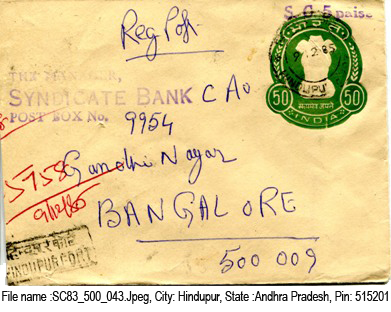 S. C. 5 paise
Reg Post
THE MANAGER,
SYNDICATE BANK C A O
POST BOX No. 9954
50 सत्यमेव जयते 50
INDIA
5758
9/12/85
Gandhi Nagar
BANGALORE
500 009
HINDUPUR
File name :SC83_500_043.Jpeg, City: Hindupur, State :Andhra Pradesh, Pin: 515201